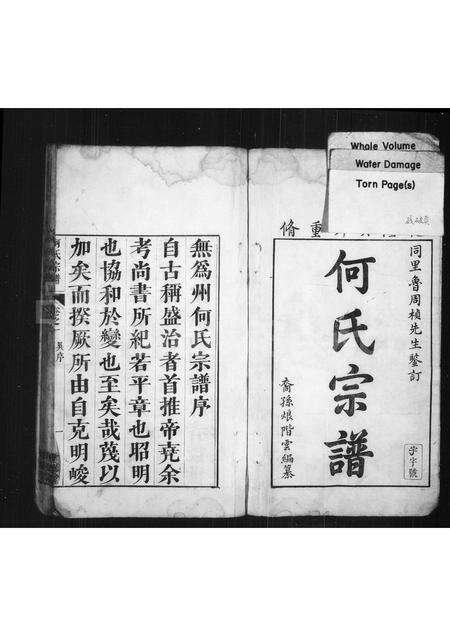 Whole Volume
Water Damage
Torn Page(s)
重脩
同里魯周楨先生鑒訂
何氏宗譜
裔孫烺階雲編纂
字號
無為州何氏宗譜序
自古稱盛治者首推帝堯余
考尚書所紀若平章也昭明
也協和於變也至矣哉蔑以
加矣而揆厥所由自克明峻
氏宗譜
序